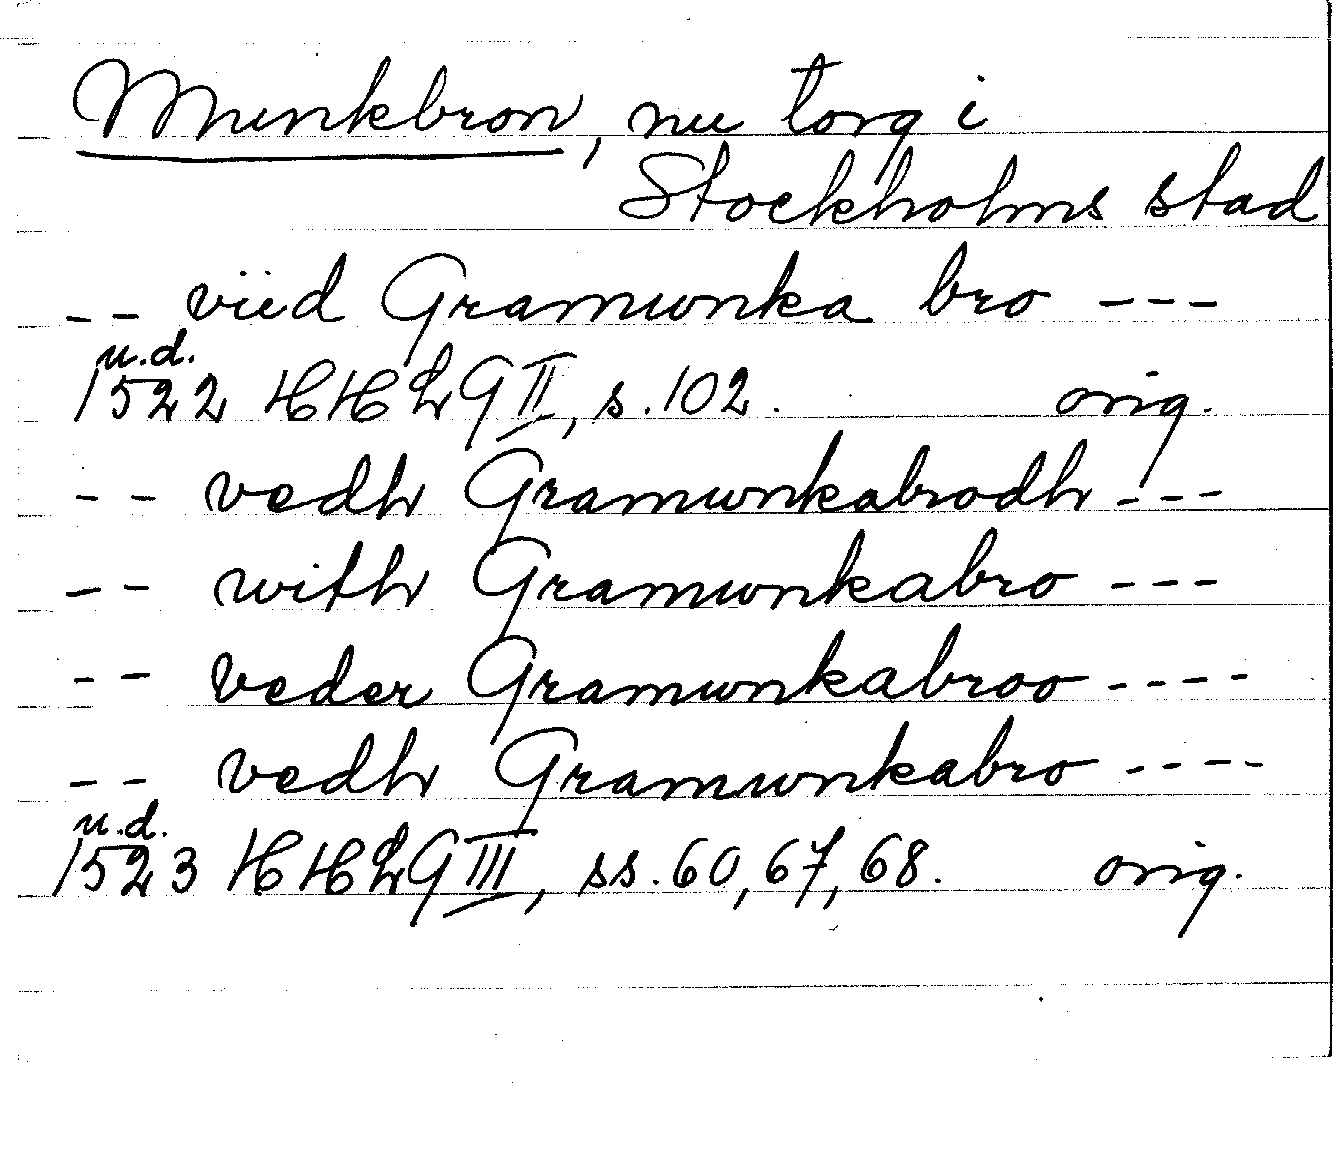 Munkbron, nu torg i
Stockholms stad
-- viid Gramwnka bro ---
u.d.
1522 HHLG II, s. 102. orig.
-- vedh Gramwnkabrodh ---
-- with Gramwnkabro ---
-- veder Gramwnkabroo ----
-- vedh Gramwnkabro ----
u.d.
1523 HHLG III, ss. 60, 67, 68. orig.